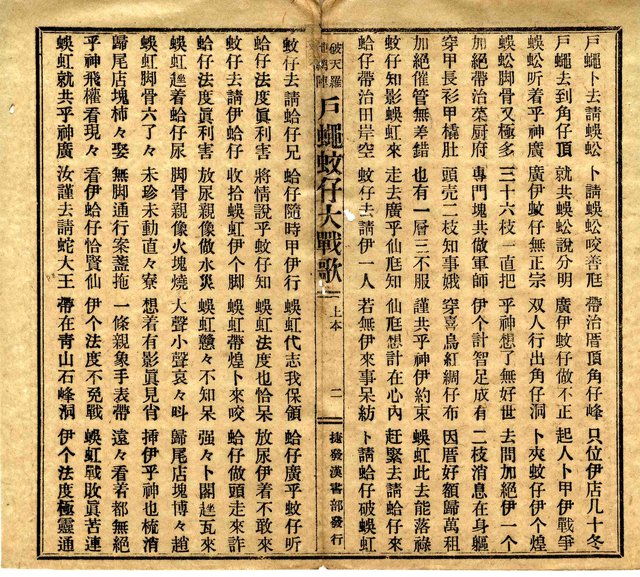 戶蠅卜去請蜈蚣　卜請蜈蚣咬善尪　帶治厝頂角仔峰　只位伊店几十冬
戶蠅去到角仔頂　就共蜈蚣說分明　廣伊蚊仔做不正　起人卜甲伊戰爭
蜈蚣听着乎神廣　廣伊蚊仔無正宗　双人行出角仔洞　卜夾蚊仔伊个煌
蜈蚣脚骨又極多　三十六枝一直把　乎神想了無好世　去問加絕伊一个
加絕帶治菜厨府　專門塊共做軍師　伊个計智足成有　二枝消息在身軀
穿甲長衫甲橇肚　頭壳二枝知事娥　穿喜烏紅綢仔布　因厝好額歸萬租
加絕催管無差錯　也有一層三不服　謹共乎神伊約束　蜈虹此去能落祿
蚊仔知影蜈虹來　走去廣乎仙尪知　仙尪想計在心內　赶緊去請蛤仔來
蛤仔帶治田岸空　蚊仔去請伊一人　若無伊來事呆紡　卜請蛤仔破蜈虹
破天羅地網陣　戶蠅蚊仔大戰歌　上本　二　捷發漢書部發行
蚊仔去請蛤仔兄　蛤仔隨時甲伊行　蜈虹代志我保領　蛤仔廣乎蚊仔听
蛤仔法度眞利害　將情說乎蚊仔知　蜈虹法度也恰呆　放尿伊着不敢來
蚊仔去請伊蛤仔　收拾蜈虹伊个脚　蜈虹帶煌卜來咬　蛤仔做頭走來詐
蛤仔法度眞利害　放尿親像做水災　蜈虹戇々不知呆　強々卜閣趖瓦來
蜈虹趖着蛤仔尿　脚骨親像火塊燒　大聲小聲哀々叫　歸尾店塊博々趙
蜈虹脚骨六了々　未珍未動直々寮　想着有影眞見肖　挿伊乎神也梳消
歸尾店塊柿々娶　無脚通行案盞拖　一條親象手表帶　遠々看着都無絕
乎神飛權看現々　看伊蛤仔恰賢仙　伊个法度不免戰　蜈虹戰敗眞苦連
蜈虹就共乎神廣　汝謹去請蛇大王　帶在靑山石峰洞　伊个法度極靈通